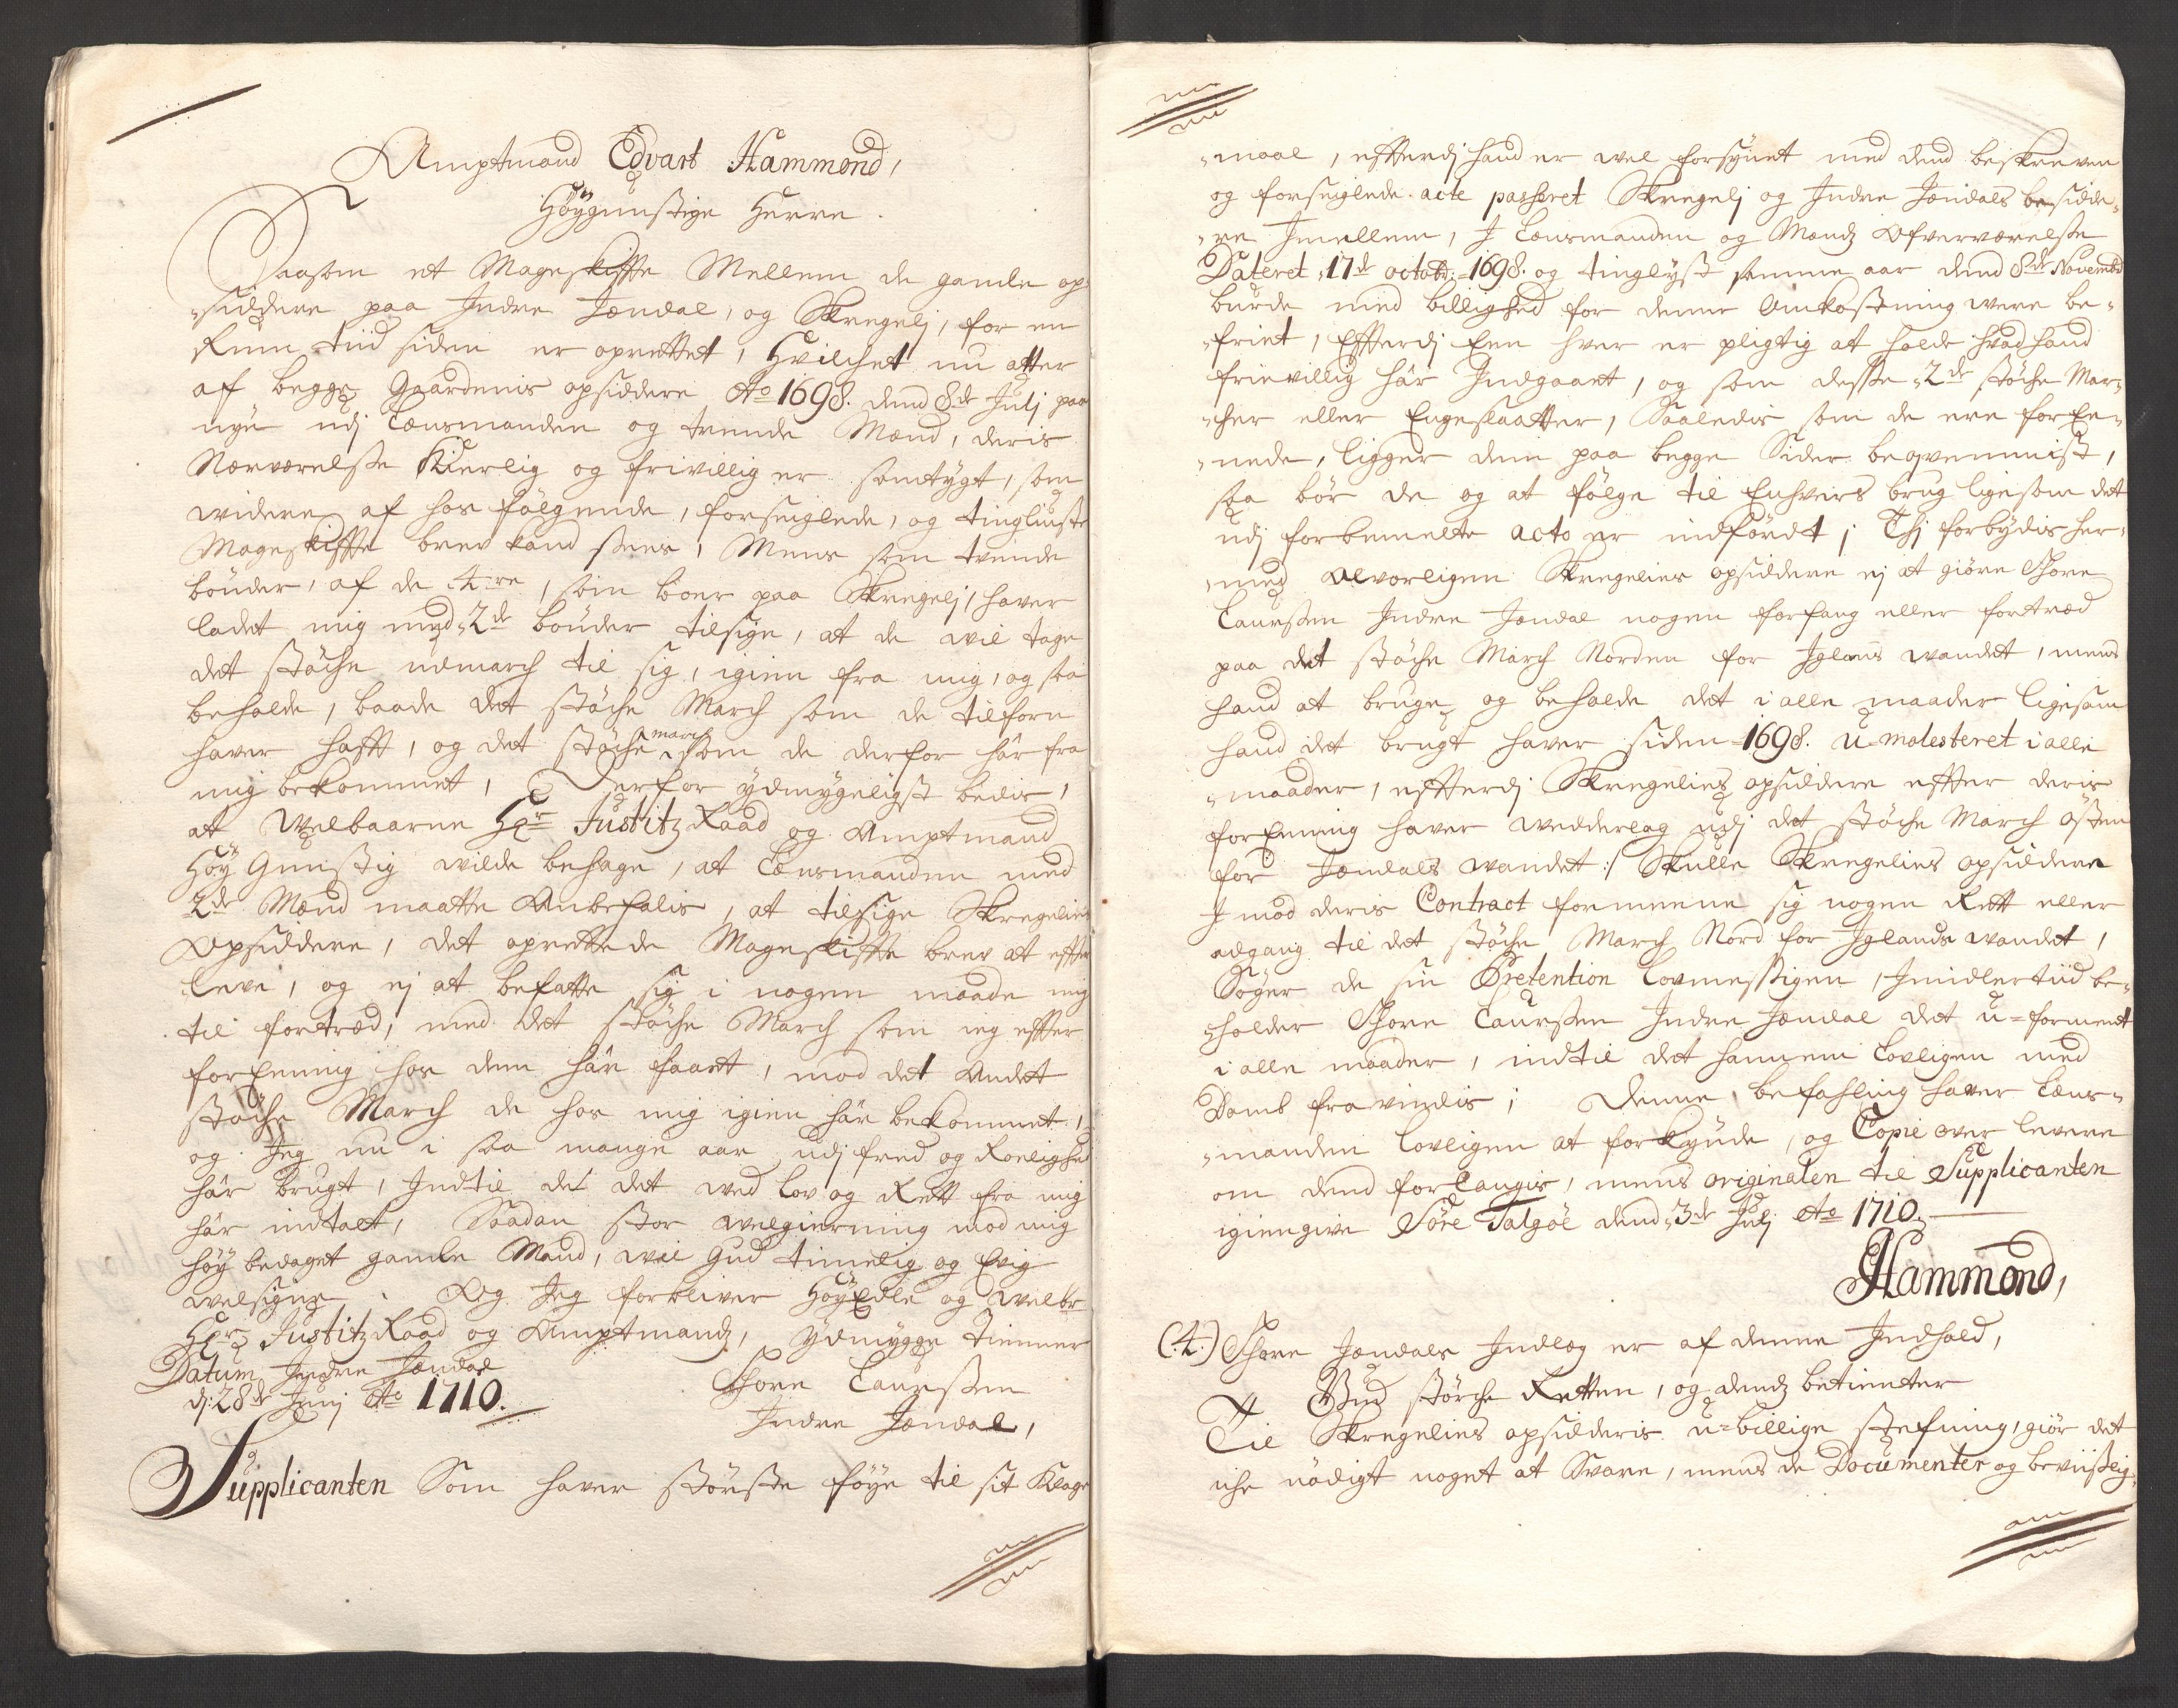 Amptmand Edvart Hammond,
Höÿgunstige Herre.
Saasom et Mageskiffte Mellem de gamle op¬
siddere paa Indre Jondal, og Skregelj, for en
Rum tiid siden er oprettet, Hvilchet nu atter
af begge Gaardenis opsiddere Ao 1698. dend 8de Julj paa
nÿe udj Lensmanden og trende Mænd, deris
Nærværelse Kierlig og frivillig er samtÿgt, som
widere af hos fölgende, forseiglede, og tingliuste
Mageskiffte brev kand sees, Mens som trende
bönder, af de 4re, som boer paa Skregelj, haver
ladet mig med 2de bönder tilsige, at de vil tage
det stöche udmarch til sig, igien fra mig, og saa
beholde, baade det stöche March som de tilforn
haver hafft, og det stöche march som de derfor har fra
mig bekommet, Derfor ÿdmÿgeligst bedis,
at Welbaarne Hr Justitz Raad og Amptmand
Höÿ Gunstig wilde behage, at Lensmanden med
2de Mænd maatte Anbefalis, at tilsige Skregelies
Opsiddere, det oprettede Mageskiffte brev at effter
leve, og ej at befatte sig i nogen maade mig
til fortræd, med det stöche March som ieg effter
forEening hos dem har faaet, mod det Andet
stöche March de hos mig igien har bekommet,
og Jeg nu i saa mange aar udj fred og Roelighed
har brugt, Indtil de det wed lov og Rett fra mig
har indtalt, Saadan stor welgierning mod mig
höÿ bedaget gamle Mand, wil Gud timelig og Evig
welsigne. Og Jeg forbliver HöÿEdle og welbr
Hr Justitz Raad og Amptmandz, ÿdmÿgge tienner
Datum Indre Jondal
dj: 28de Junj Ao 1710.
Thore Laurssen
Indre Jondal,
Supplicanten Som haver störste föÿe til sit Klage
maal, efftterdj hand er wel forsÿnet med dend beskreven
og forseiglede acte passeret Skregelj og Indre Jondals besidde¬
re Imellem, J Lensmanden og Mendz Ofverværelse
Dateret 17de octobr: 1698. og tinglÿst samme aar dend 8de Novembr
burde med billighed for denne Omkostning were be¬
friet, Effterdj Een hver er pligtig at holde hvad hand
frievillig har Indgaaet, og som desse 2de stöche Mar¬
cher eller Engeslaatter, Saaledis som de ere forEe¬
nede, ligger dem paa begge Sider beqvemmist,
saa bör de og at fölge til Enhvers brug ligesom det
udj forbemelte acto er indfördt; Thj forbÿdis her¬
med Alvorligen Skregelies opsiddere ej at giöre Thore
Laurssen Indre Jondal nogen forfang eller fortræd
paa det stöche March Norden for Iglans wandet, mens
hand at bruge og beholde det i alle maader ligesom
hand det brugt haver siden 1698. u-molesteret i alle
maader, effterdj Skregelies opsiddere effter deris
forEening haver wedderlag udj det stöche March östen
for Jondals wandet :/ Skulle Skregelies opsiddere
J mod deris Contract formeene sig nogen Rett eller
adgang til det stöche March Nord for Iglands wandet,
Söger de sin Prætention lovmessigen, Imidlertiid be¬
holder Thore Laurssen Indre Jondal det u-formeent
i alle maader, indtil det hannem lovligen med
Domb fravindis; Denne befahling haver Lens¬
manden lovligen at forkÿnde, og Copie over levere
om dend forlangis, mens originalen til Supplicanten
igiengive Söre Talgöe dend 3de Julj Ao 1710.
Hammond,
(4.) Thore Jondals Indleg er af denne Indhold,
Gud störche Retten, og dends betienter
Til Skregelies opsidderis u-billige stefning, giör det
iche nödigt noget at Svare, mens de Documenter og beviislig¬